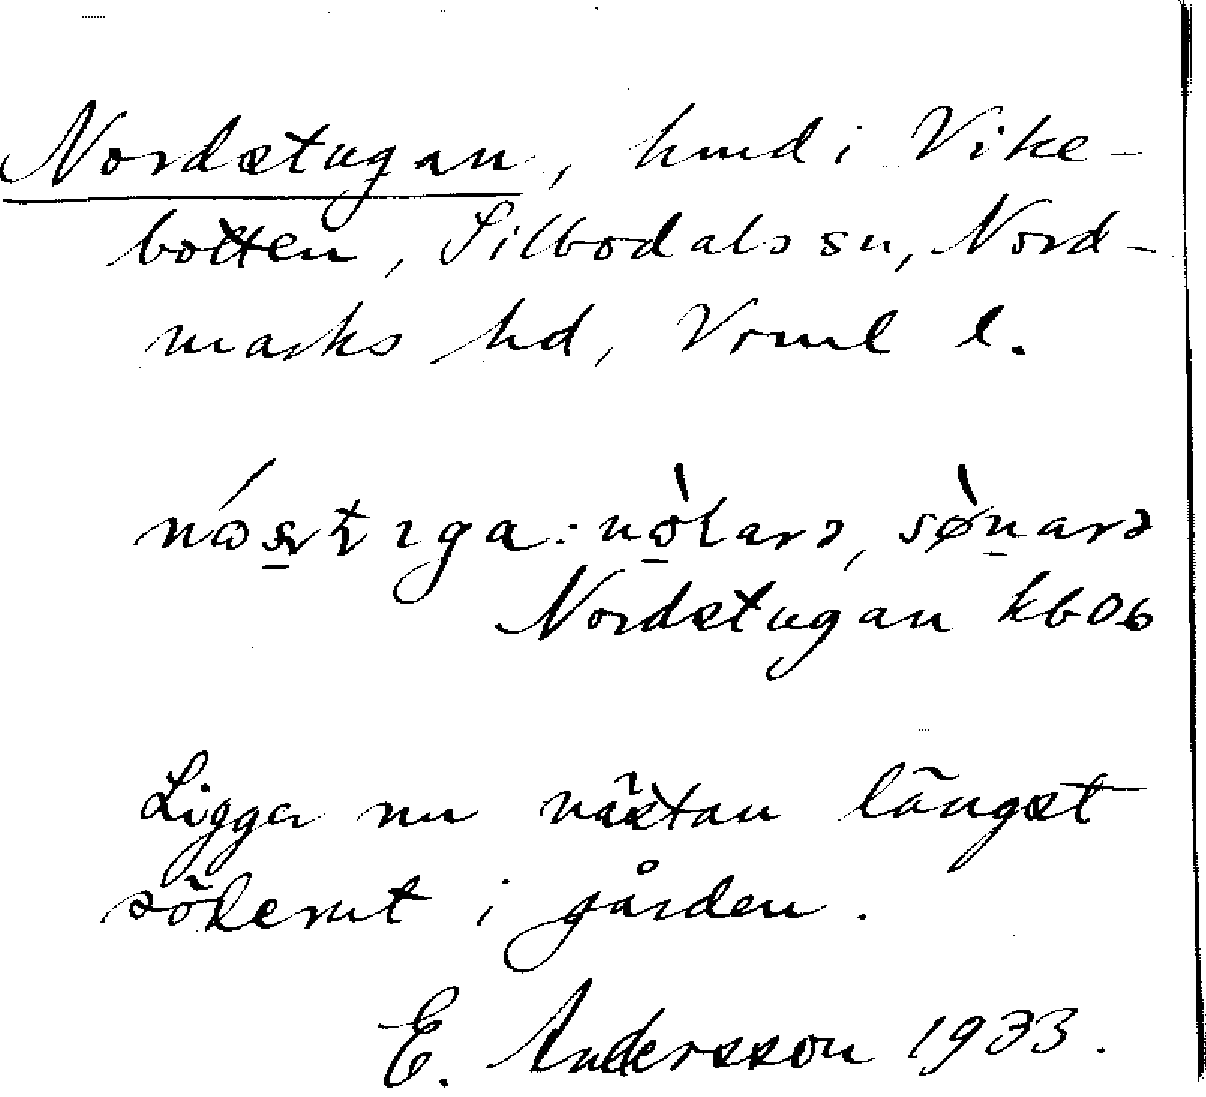 Nordstugan, hmd i Vike-
botten, Silbodals sn, Nord-
marks hd, Vrml l.
Nordstugan kb 06
Ligger nu nästan längst
söderut i gården.
E. Andersson 1933.